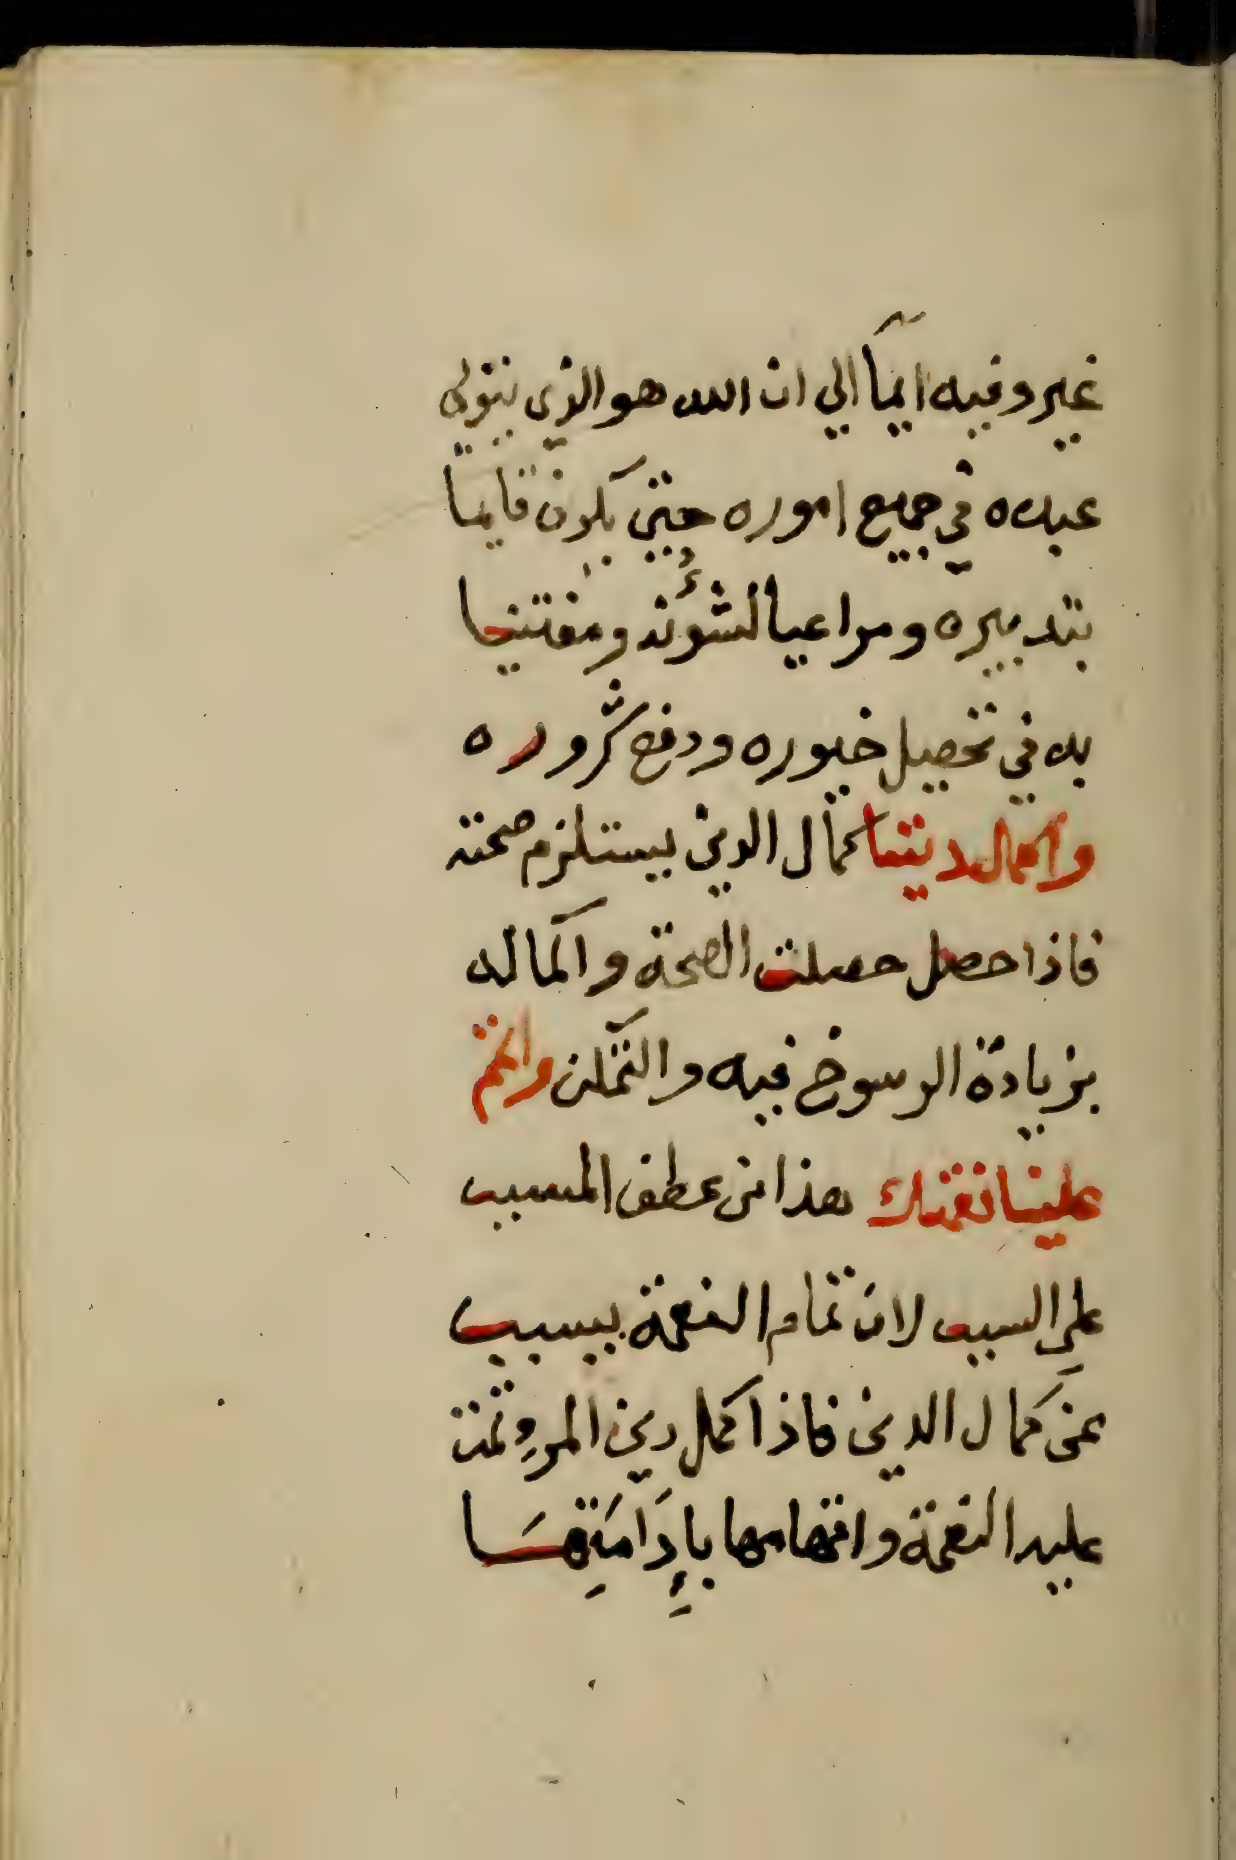 غير وفيه ايمآ الي ان الله هو الذي يتولي
عبده في جميع اموره حتي يكون قايما
بتدبيره ومراعيا لشؤنه ومعتنيا
به في تحصيل خيوره ودفع شروره
واكمل ديننا كمال الدين يستلزم صحته
فاذا حصل حصلت الصحة واكماله
بزيادة الرسوخ فيه والتمكن واتمم
علينا نعمتك هذا من عطف المسبب
علي السبب لان تمام النعمة بسبب
عن كمال الدين فاذا كمل دين المرء تمت
عليه النعمة واتمامها بإدَامَتِهَا